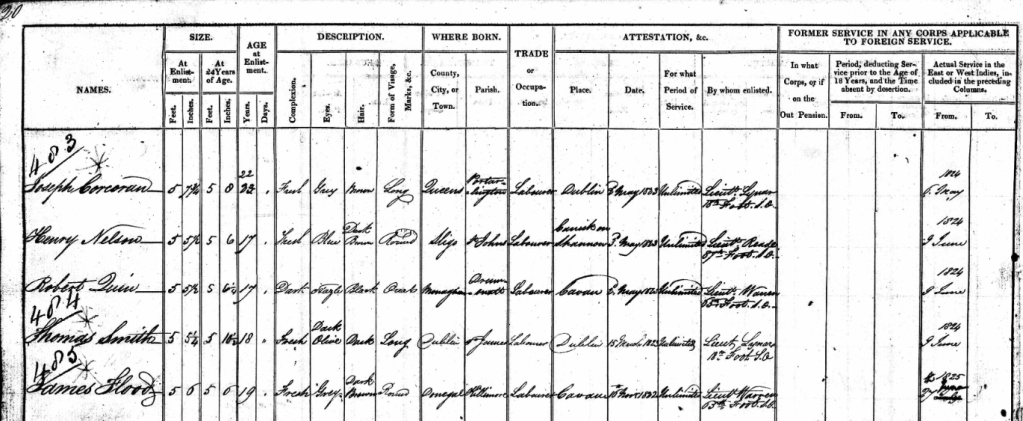 20
NAMES.
SIZE.
At Enlistment.
At 24 Years of Age.
Feet. Inches. Feet. Inches.
AGE at Enlistment.
Years. Days.
DESCRIPTION.
Complexion. Eyes. Hair. Form of Visage, Marks, &c.
WHERE BORN.
County, City, or Town. Parish.
TRADE or Occupation.
ATTESTATION, &c.
Place. Date. For what Period of Service. By whom enlisted.
FORMER SERVICE IN ANY CORPS APPLICABLE TO FOREIGN SERVICE.
In what Corps, or if on the Out Pension.
Period, deducting Service prior to the Age of 18 Years, and the Time absent by desertion.
From. To.
Actual Service in the East or West Indies, included in the preceding Columns.
From. To.
483
Joseph Corcoran 5 5 8 22 Fresh Grey Brown Long Queens Labourer Dublin May 1823 Unlimited Lieut. Lynar 1824
Henry Nelson 5 5 6 17 Fresh Blue Dark Brown Round Sligo St Johns Labourer Carrick on Shannon May 1823 Unlimited Lieut. 87th Foot. 1824 9 June
Robert Quin 5 5 17 Dark Hazle Black Oval Monaghan Labourer Cavan May Unlimited Lieut. Warren 65th Foot. 1824 9 June
484
Thomas Smith 5 5 18 Fresh Dark Long Dublin Labourer Dublin Unlimited Lieut. Lynar Foot 1824 9 June
485
James Flood 5 6 5 6 19 Fresh Grey Dark Brown Round Labourer Cavan Unlimited Lieut Warren 65th Foot. 1825 27